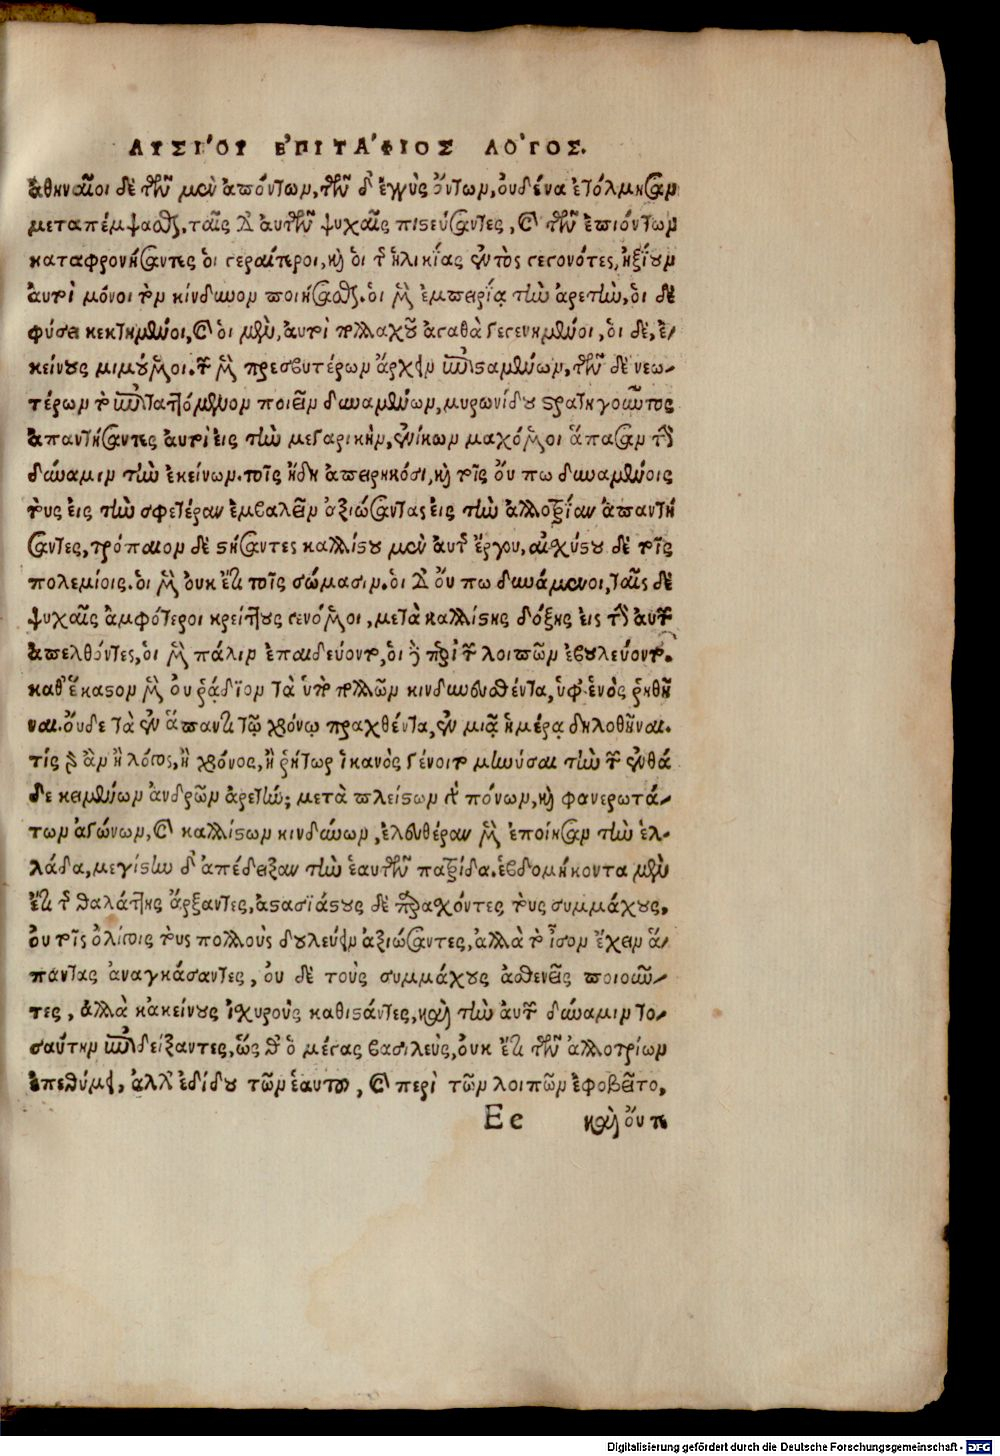 ΛΥΣΙ´ΟΥ ἘΠΙΤΑ´ΦΙΟΣ ΛΟ´ΓΟΣ.
ἀθηναῖοι δὲ τῶν μὲν ἀπόντων, τῶν δ' ἐγγὺς ὄντων, οὐδένα ἐτόλμησαν
μεταπέμψασθαι. ταῖς δ' αὑτῶν ψυχαῖς πιστεύσαντες, καὶ τῶν ἐπιόντων
καταφρονήσαντες ὁι γεραίτεροι, καὶ ὁι τῆς ἡλικίας ἐντὸς γεγονότες, ἠξίουν
αὐτοὶ μόνοι τὸν κίνδυνον ποιήσασθαι. ὁι μὲν ἐμπειρίᾳ τὴν ἀρετὴν, ὁι δὲ
φύσει κεκτημένοι, καὶ ὁι μὲν, αὐτοὶ πολλαχοῦ ἀγαθὰ γεγενημένοι, ὁι δὲ, ἐ-
κείνους μιμούμενοι. τῶν μὲν πρεσβυτέρων ἄρχειν ἐπισταμένων, τῶν δὲ νεω-
τέρων τὸ ἐπιταττόμενον ποιεῖν δυναμένων, μυρωνίδου στρατηγοῦντος
ἀπαντήσαντες αὐτοὶ εἰς τὴν μεγαρικὴν, ἐνίκων μαχόμενοι ἅπασαν τὴν
δύναμιν τὴν ἐκείνων. τοῖς ἤδη ἀπειρηκόσι, καὶ τοῖς οὔ πω δυναμένοις
τοὺς εἰς τὴν σφετέραν ἐμβαλεῖν ἀξιώσαντας εἰς τὴν ἀλλοτρίαν ἀπαντή
σαντες, τρόπαιον δὲ στήσαντες καλλίστου μὲν αὐτοῖς ἔργου, αἰσχίστου δὲ τοῖς
πολεμίοις. ὁι μὲν οὐκ ἔτι τοῖς σώμασιν. ὁι δ' οὔ πω δυνάμενοι, ταῖς δὲ
ψυχαῖς ἀμφότεροι κρείττους γενόμενοι, μετὰ καλλίστης δόξης εἰς τὴν αὑτῶν
ἀπελθόντες, ὁι μὲν πάλιν ἐπαιδεύοντο, ὁι δὲ περὶ τῶν λοιπῶν ἐβουλεύοντο.
καθ' ἕκαστον μὲν οὐ ῥᾴδϊον τὰ ὑπὸ πολλῶν κινδυνευθέντα, ὑφ' ἑνὸς ῥηθῆ
ναι. οὔδε τὰ ἐν ἅπαντι τῷ χρόνῳ πραχθέντα, ἐν μιᾷ ἡμέρᾳ δηλοθῆναι.
τίς γὰρ ἂν ἢ λόγος, ἢ χρόνος, ἢ ῥήτωρ ἱκανὸς γένοιτο μηνύσαι τὴν τῶν ἐνθά
δε κειμένων ἀνδρῶν ἀρετήν; μετὰ πλείστων γὰρ πόνων, καὶ φανερωτά-
των ἀγώνων, καὶ καλλίστων κινδύνων, ἐλευθέραν μὲν ἐποίησαν τὴν ἑλ-
λάδα, μεγίστην δ' ἀπέδειξαν τὴν ἑαυτῶν πατρίδα. ἑβδομήκοντα μὲν
ἔτι τῆς θαλάττης ἄρξαντες, ἀστασϊάστους δὲ παραχόντες τοὺς συμμάχους,
οὐ τοῖς ὀλίγοις τοὺς πολλοὺς δουλεύειν ἀξιώσαντες, ἀλλὰ τὸ ἶσον ἔχειν ἅ-
παντας ἀναγκάσαντες, οὐ δὲ τοὺς συμμάχους ἀσθενεῖς ποιοῦν-
τες, ἀλλὰ κἀκείνους ἰσχυροὺς καθιστάντες, καὶ τὴν αὑτῶν δύναμιν το-
σαύτην ἐπιδείξαντες, ὥς θ' ὁ μέγας βασιλεὺς, οὐκ ἔτι τῶν ἀλλοτρίων
ἐπεθύμει, ἀλλ' ἐδίδου τῶν ἑαυτοῦ, καὶ περὶ τῶν λοιπῶν ἐφοβεῖτο,
Ee καὶ οὔ τε
Digitalisierung gefördert durch die Deutsche Forschungsgemeinschaft - DFG